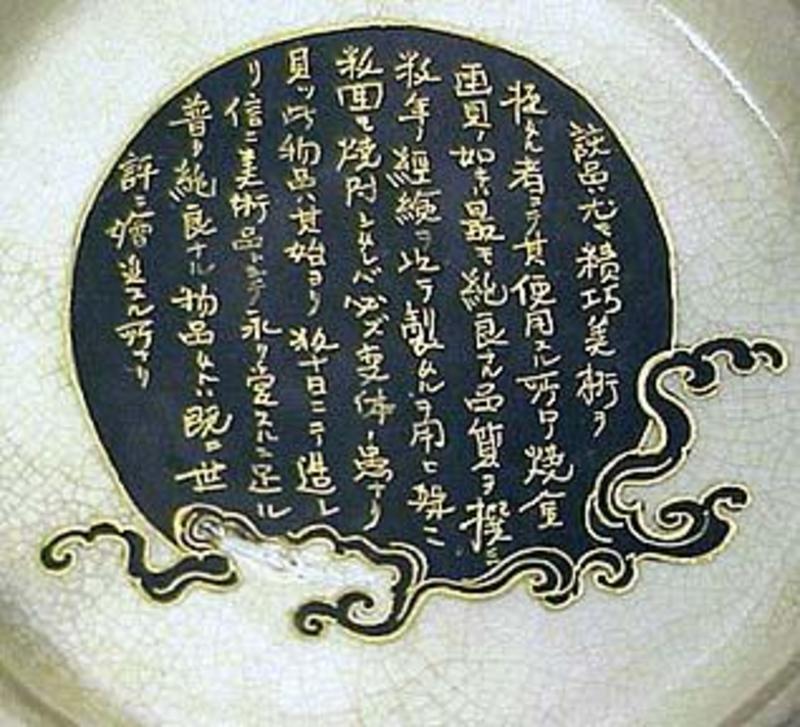 該品ハ尤モ精巧美術ヲ
極ムル者ニシテ其使用スル所ロノ焼金
画具ノ如キハ最モ純良ナル品質ヲ撰ミ
数年ノ経験ヲ以テ製スルヲ用ヒ
数回モ焼附シムレバ必ズ変体ノ患ナリ
見ツ此物品ハ其始ヨリ数十日ニテ造レ
リ信ニ美術品トシテ永ク愛スルニ足ル
普ク純良ナル物品ムハ既ニ世
評ニ嘖進スル所ナリ